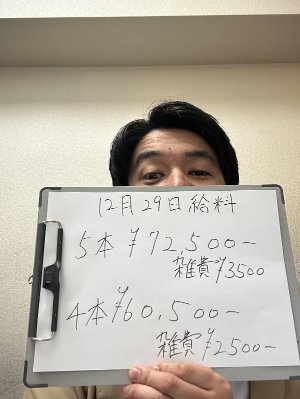 12月29日給料
5本 ¥72,500-
雑費¥3500
4本 ¥60,500-
雑費 ¥2500-